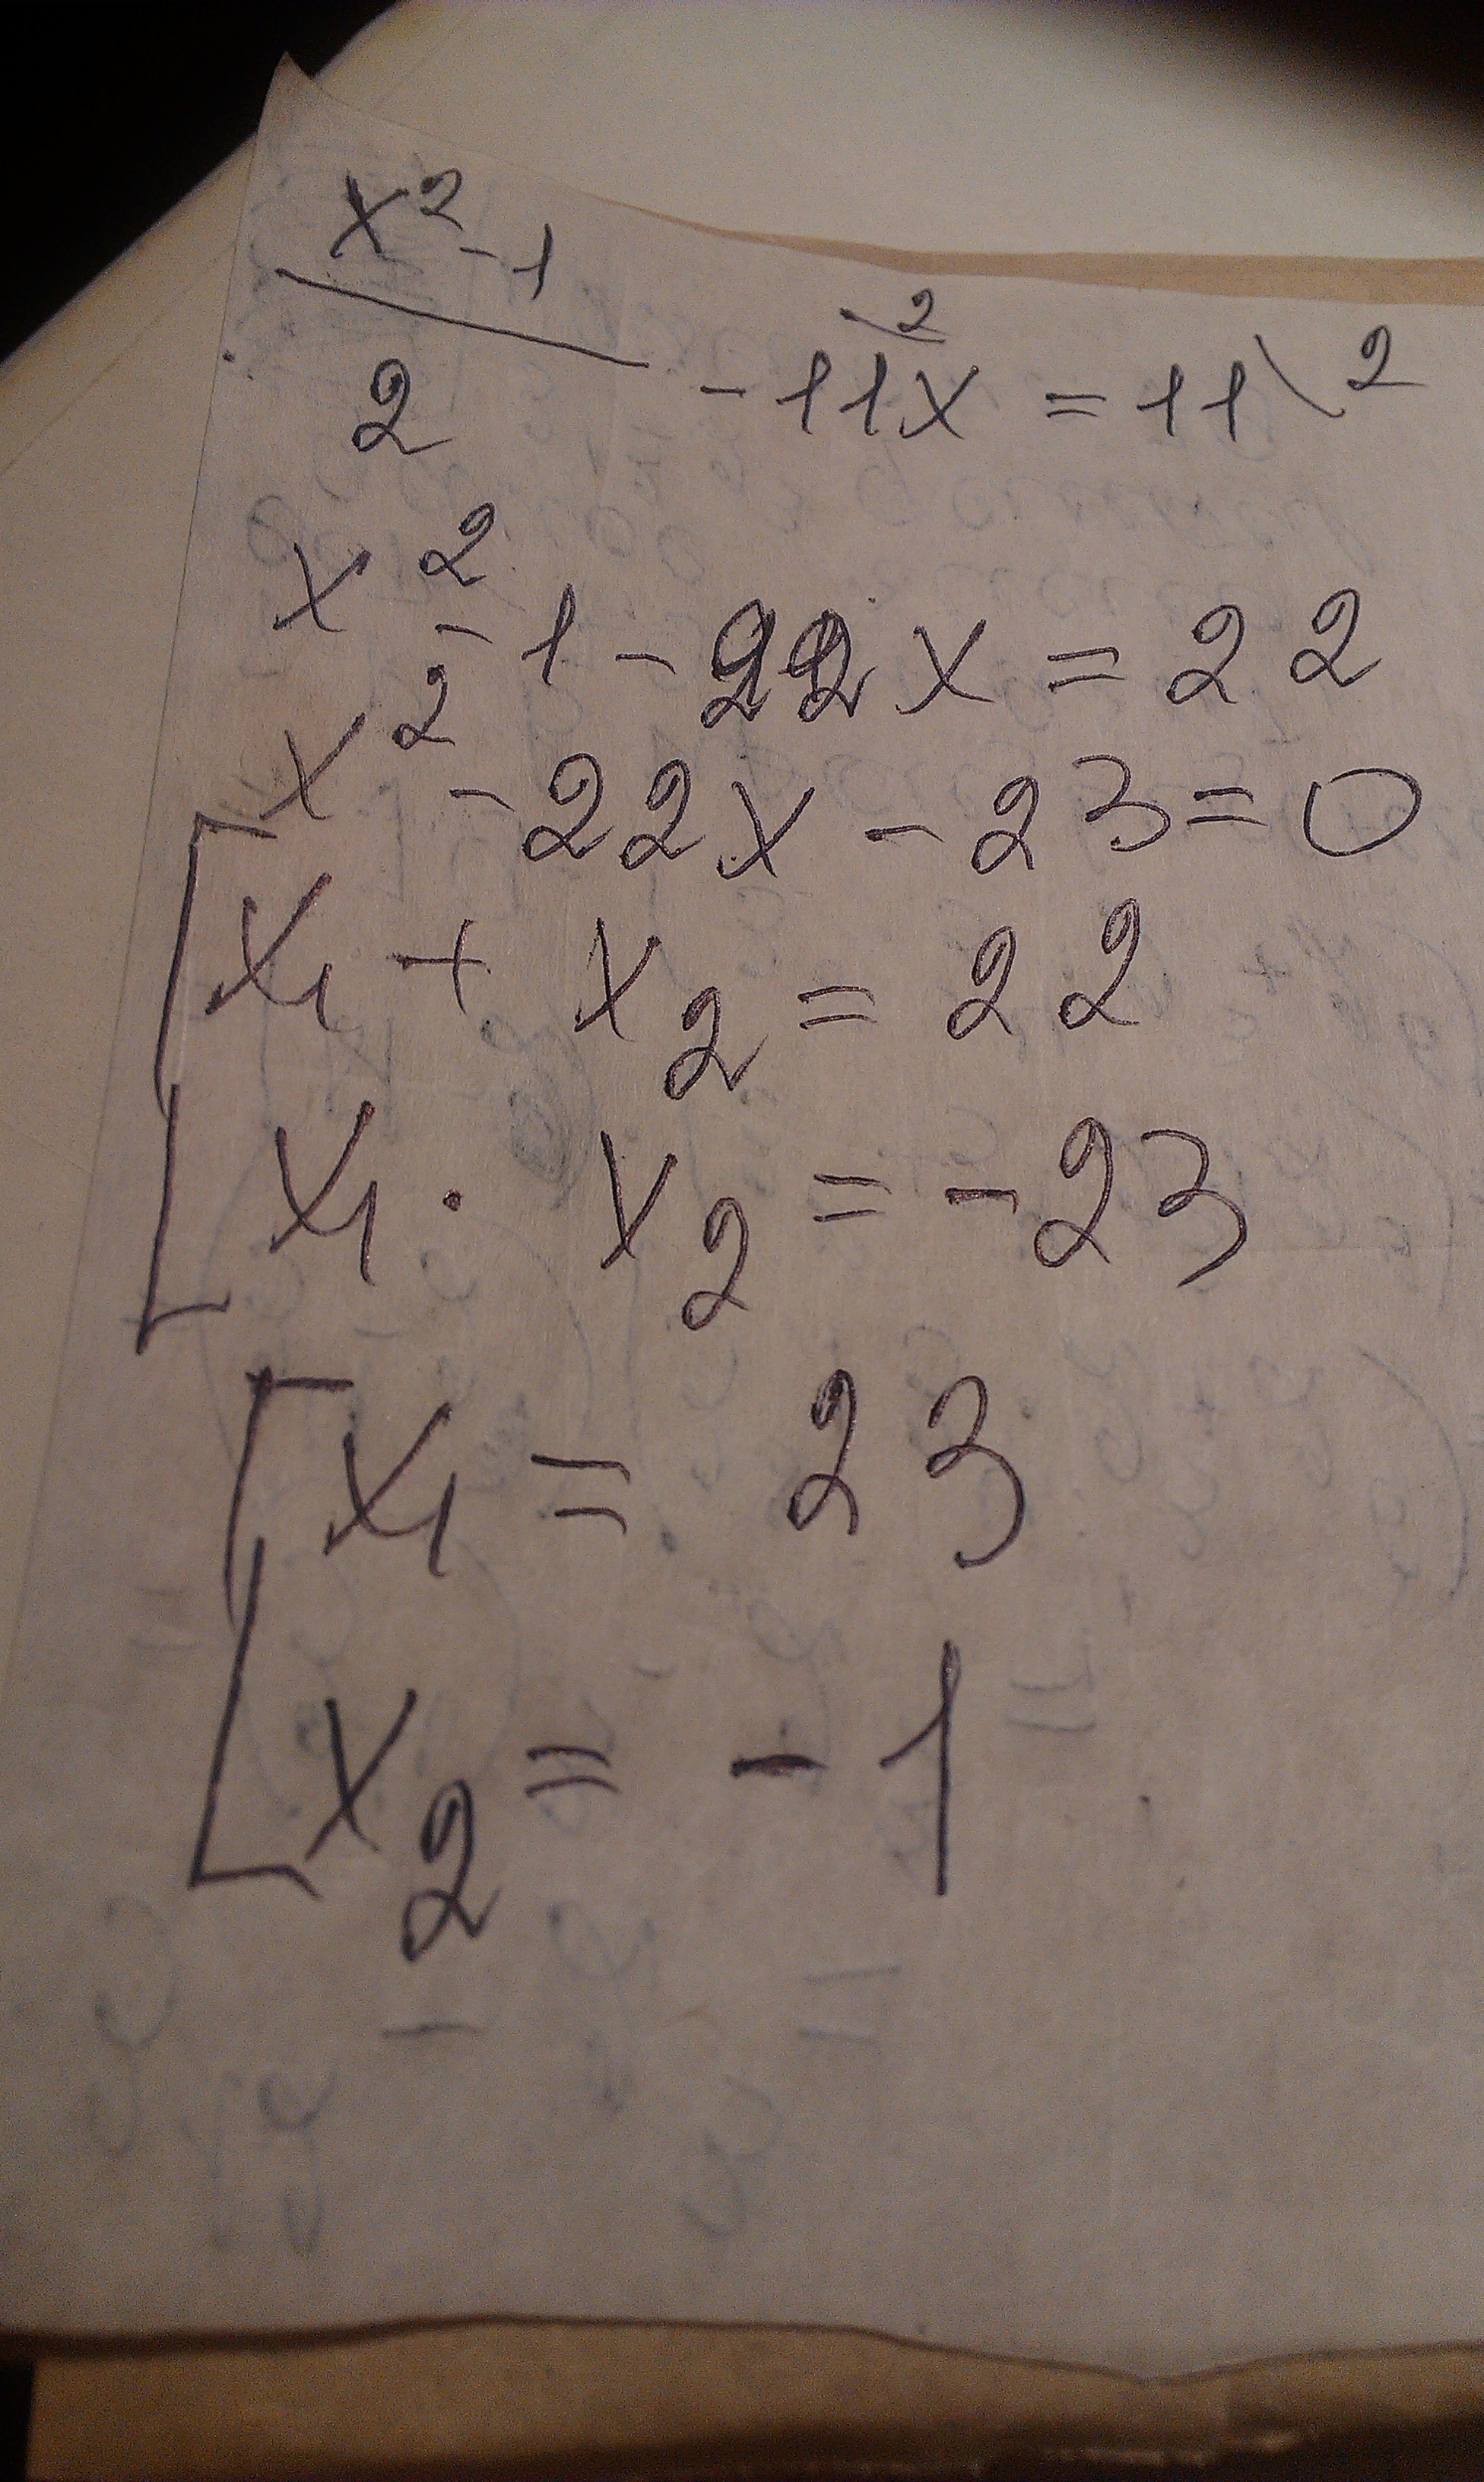 x² - 1
2 - 11x\² = 11\²
x² - 1 - 22x = 22
x² - 22x - 23 = 0
[ x₁ + x₂ = 22
x₁ · x₂ = -23
[ x₁ = 23
x₂ = -1